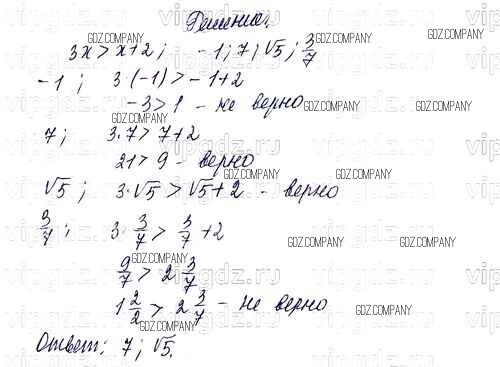 Решение.
3x > x+2; -1; 7; √5; 3/7
-1; 3·(-1) > -1+2
-3 > 1 - не верно
7; 3·7 > 7+2
21 > 9 - верно
√5; 3·√5 > √5+2 - верно
3/7; 3·3/7 > 3/7+2
9/7 > 2 3/7
1 2/2 > 2 3/7 - не верно
Ответ: 7; √5.
GDZ.COMPANY
vipgdz.ru